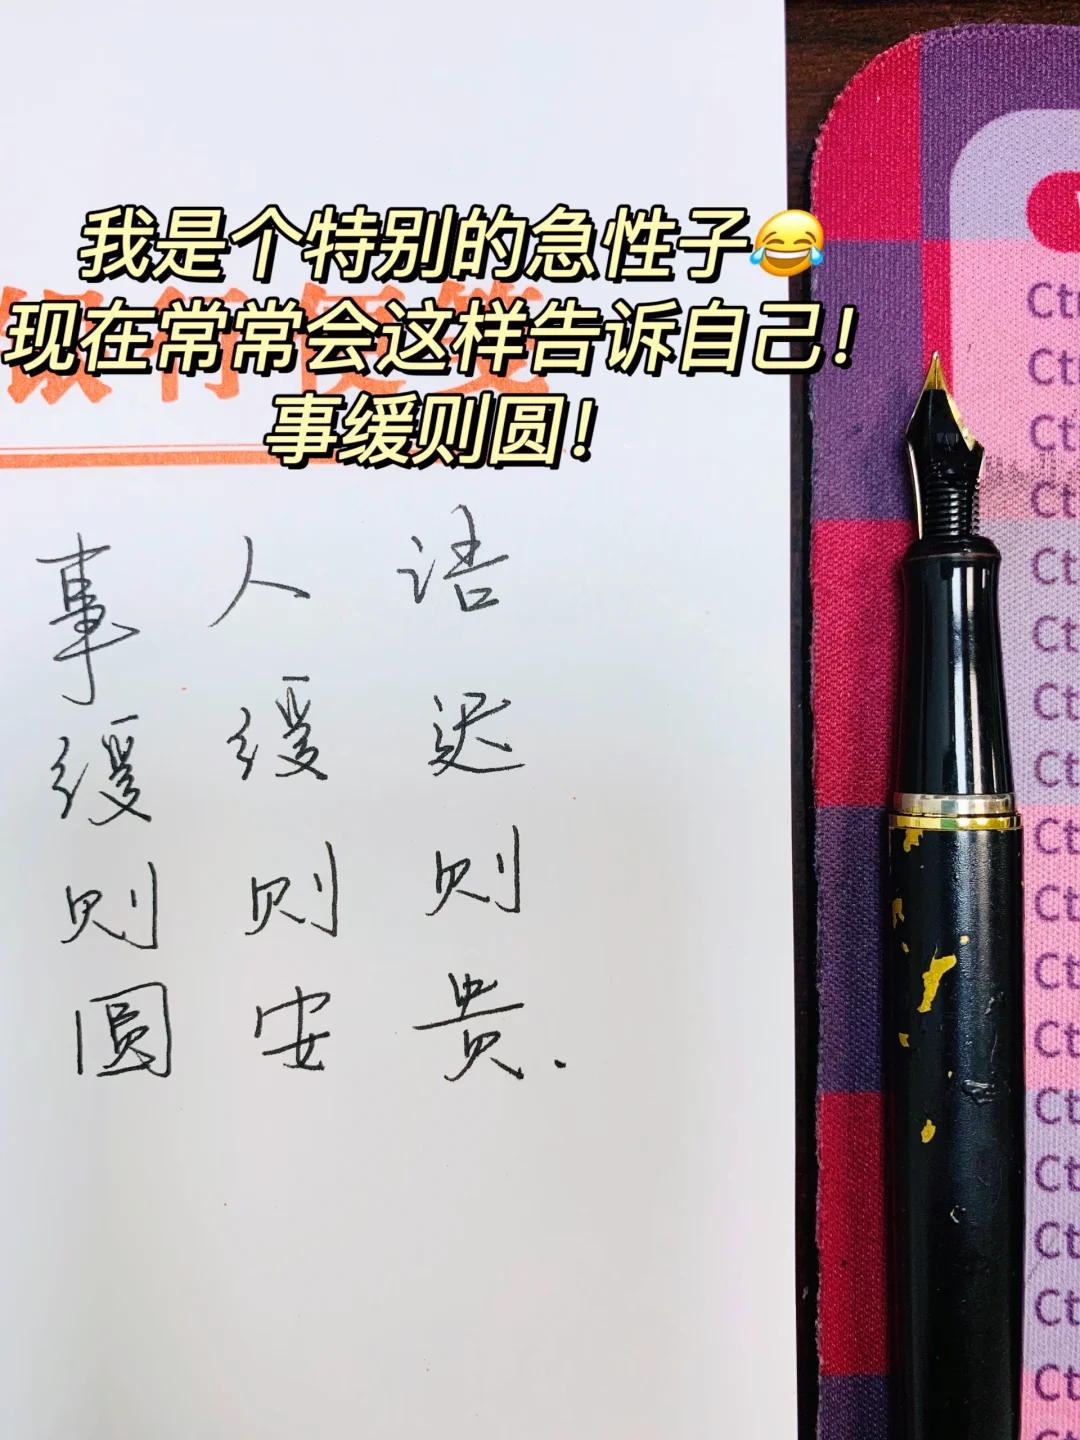 我是个特别的急性子😂
现在常常会这样告诉自己！
事缓则圆！
银行便笺
事缓则圆
人缓则安
语迟则贵.
Ct
Ct
Ct
Ct
Ct
Ct
Ct
Ct
Ct
Ct
Ct
Ct
Ct
Ct
Ct
Ct
Ct